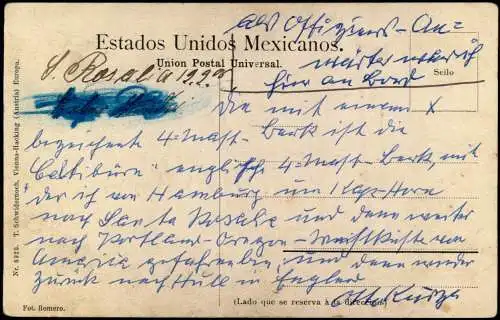 als Offiziers-An=
wärter
hier an Bord
Estados Unidos Mexicanos.
Union Postal Universal.
S. Rosalia
Sello
Die mit einem X
bezeichnete 4=Mast-Bark ist die
englische 4=Mast-Bark, mit
der ich von Hamburg um Kap-Horn
nach Santa Rosalia und dann weiter
nach Portland-Oregon-Westküste von
America gefahren bin, und dann wieder
zurück nach Hull in England
(Lado que se reserva á la direccion)
Otto
Fot. Romero.
Nr. 8925. T. Schwidernoch, Vienna-Hacking (Austria) Europa.